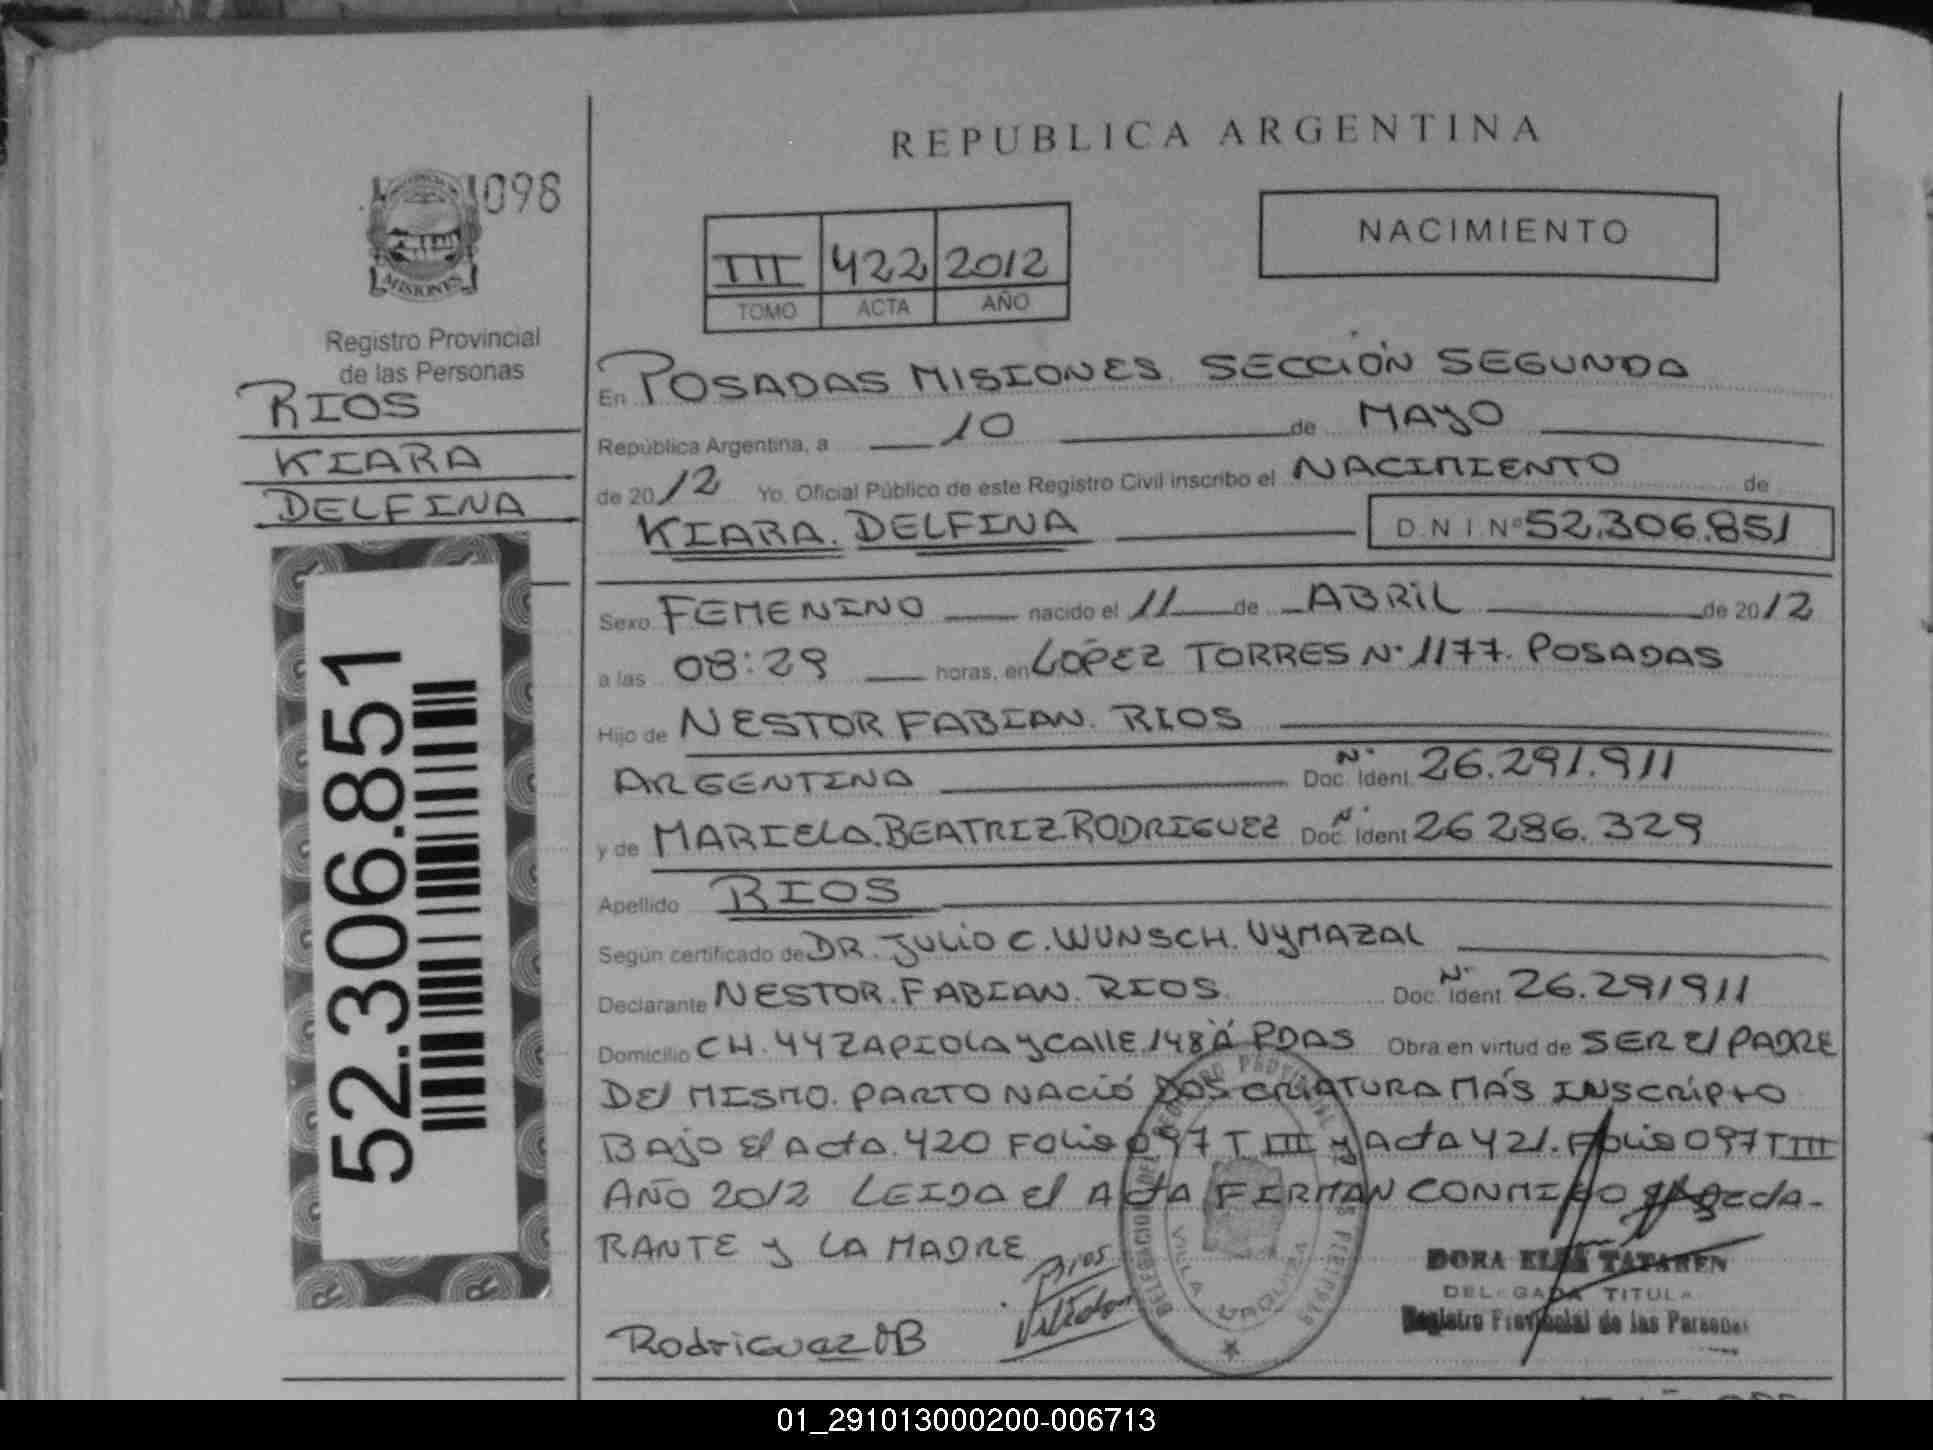 REPUBLICA ARGENTINA
098
MISIONES
Registro Provincial
de las Personas
RIOS
KIARA
DELFINA
52.306.851
III 422 2012
TOMO ACTA AÑO
NACIMIENTO
En POSADAS MISIONES. SECCIÓN SEGUNDA
República Argentina, a 10 de MAYO
de 2012 Yo. Oficial Público de este Registro Civil inscribo el NACIMIENTO de
KIARA. DELFINA D N I Nº 52.306.851
Sexo FEMENINO nacido el 11 de ABRIL de 2012
a las 08:29 horas, en LOPEZ TORRES Nº 1177. POSADAS
Hijo de NESTOR FABIAN. RIOS
ARGENTINA Nº Doc. Ident 26.291.911
y de MARIELA.BEATRIZ RODRIGUEZ Nº Doc. Ident 26 286.329
Apellido RIOS
Según certificado de DR. JULIO C. WUNSCH. VYMAZAL
Declarante NESTOR. FABIAN. RIOS. Nº Doc. Ident 26.291911
Domicilio CH. 44 ZAPIOLA y CALLE 148 "A" PDAS Obra en virtud de SER El PADRE
DEl MISMO. PARTO NACIÓ DOS CRIATURA MÁS INSCRIPTO
BAJO El ActA. 420 FOLIO 097 T III y ActA 421. FOLIO 097 T III
AÑO 2012 LEIDA El ActA FIRMAN CONMIGO DEClA-
RANTE y LA MADRE
Rios
Rodriguez MB
DELEGACION DEL REGISTRO PROVINCIAL DE LAS PERSONAS
VILLA URQUIZA
DORA ELSA
DELEGADA TITULAR
Registro Provincial de las Personas
01_291013000200-006713